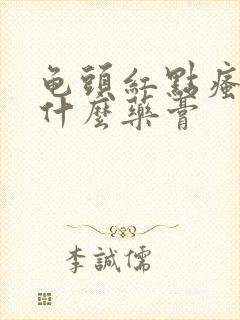 龟頭紅點瘙
什麼藥膏
李誠儒